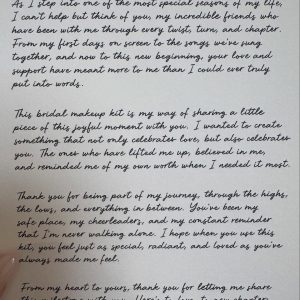 As I step into one of the most special seasons of my life,
I can't help but think of you, my incredible friends who
have been with me through every twist, turn, and chapter.
From my first days on screen to the songs we've sung
together, and now to this new beginning, your love and
support have meant more to me than I could ever truly
put into words.
This bridal makeup kit is my way of sharing a little
piece of this joyful moment with you. I wanted to create
something that not only celebrates love, but also celebrates
you. The ones who have lifted me up, believed in me,
and reminded me of my own worth when I needed it most.
Thank you for being part of my journey, through the highs,
the lows, and everything in between. You've been my
safe place, my cheerleaders, and my constant reminder
that I'm never walking alone. I hope when you use this
kit, you feel just as special, radiant, and loved as you've
always made me feel.
From my heart to yours, thank you for letting me share